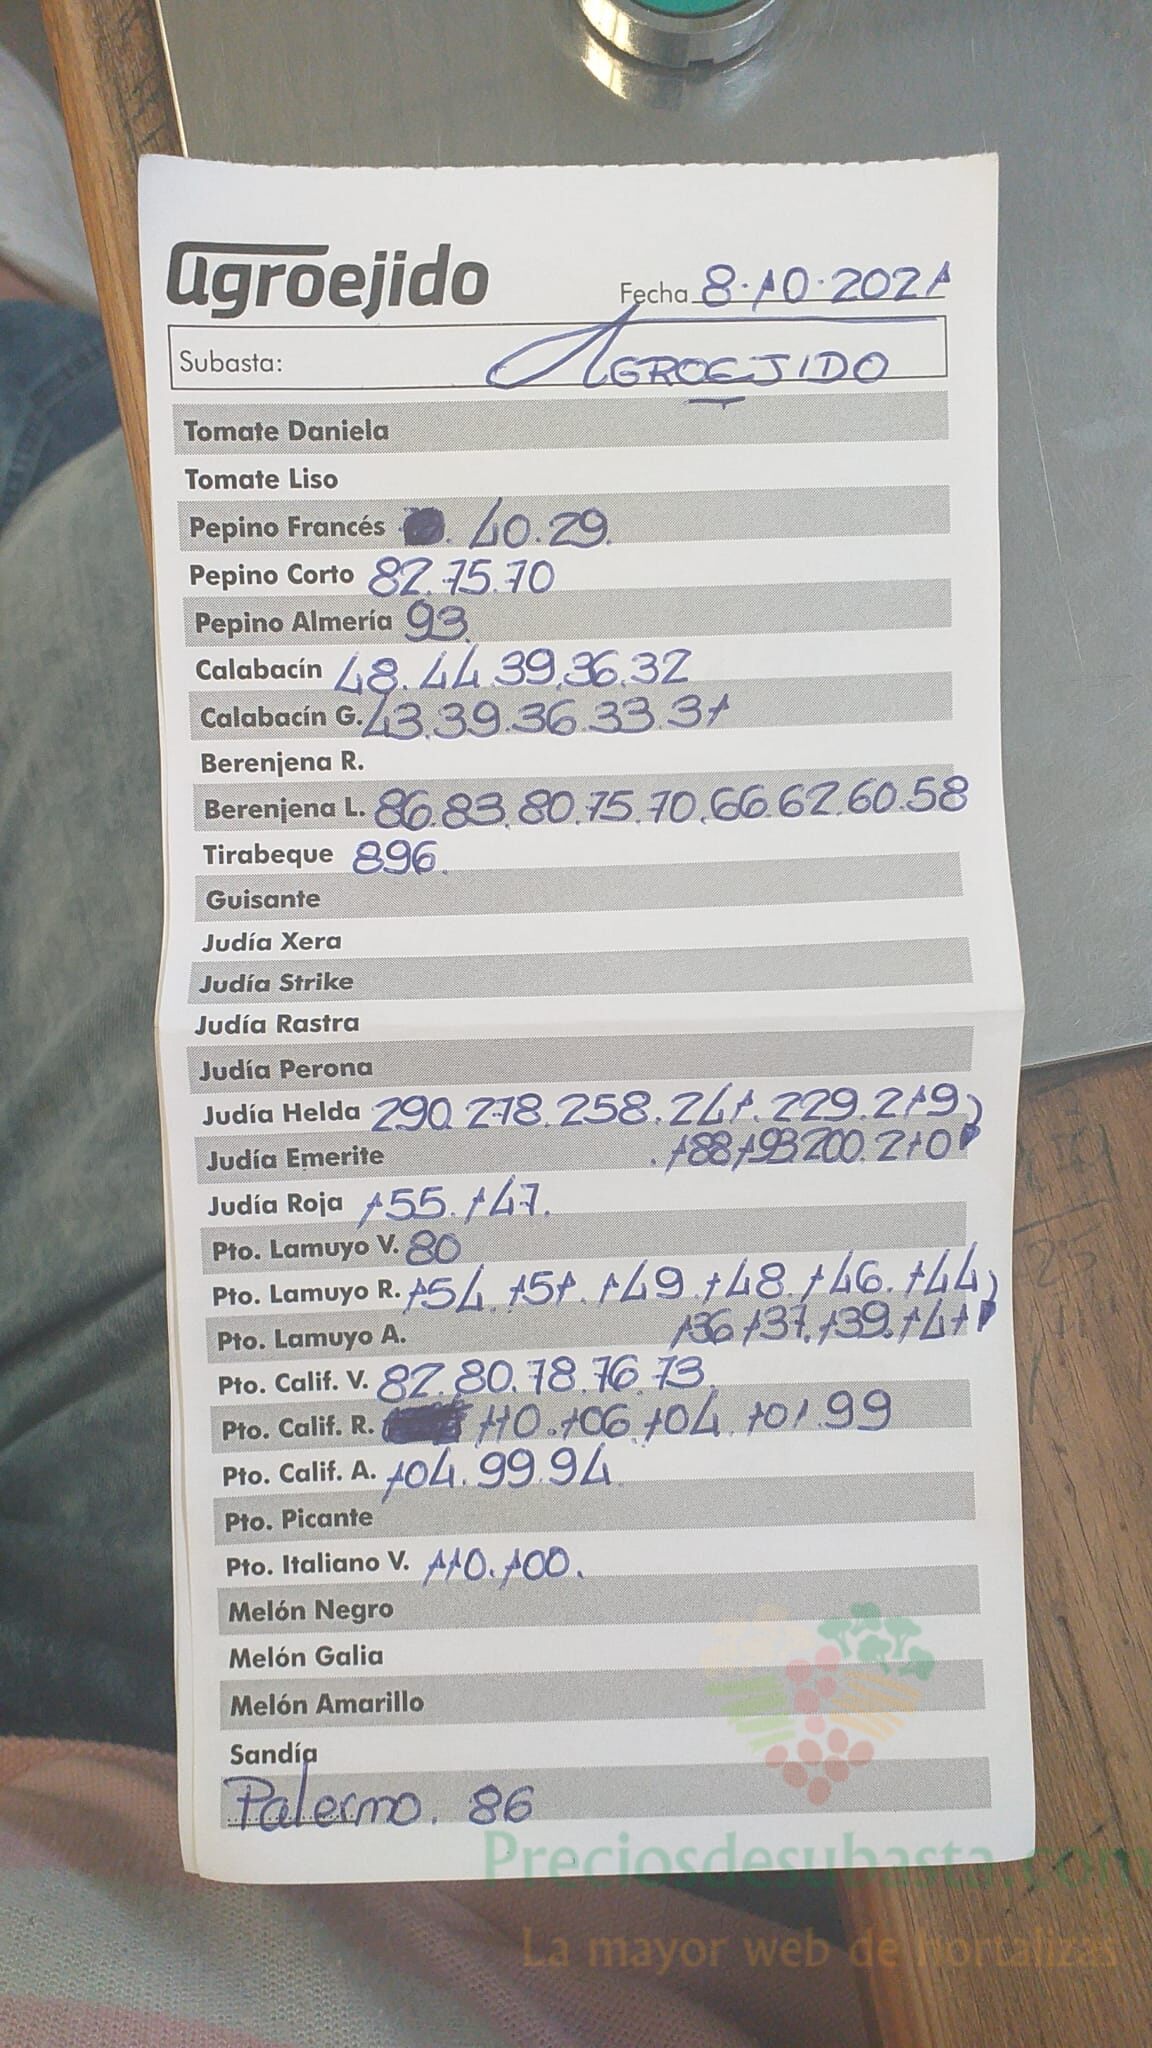 agroejido
Fecha 8.10.2021
Subasta: AGROEJIDO
Tomate Daniela
Tomate Liso
Pepino Francés . 40.29.
Pepino Corto 82.75.70
Pepino Almería 93
Calabacín 48.44.39.36.32
Calabacín G. 43.39.36.33.31
Berenjena R.
Berenjena L. 86.83.80.75.70.66.62.60.58
Tirabeque 896.
Guisante
Judía Xera
Judía Strike
Judía Rastra
Judía Perona
Judía Helda 290.278.258.241.229.219
Judía Emerite .188.193.200.210
Judía Roja 155.147.
Pto. Lamuyo V. 80
Pto. Lamuyo R. 154.151.149.148.146.144
Pto. Lamuyo A. 136.137.139.141
Pto. Calif. V. 82.80.78.76.73.
Pto. Calif. R. 110.106.104.101.99
Pto. Calif. A. 104.99.94
Pto. Picante
Pto. Italiano V. 110.100.
Melón Negro
Melón Galia
Melón Amarillo
Sandía
Palermo. 86
Preciosdesubasta.com
La mayor web de hortalizas